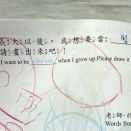 長大以後,我想要當
請畫出來吧!
I want to be when I grow up.Please draw it
老師的
Words from